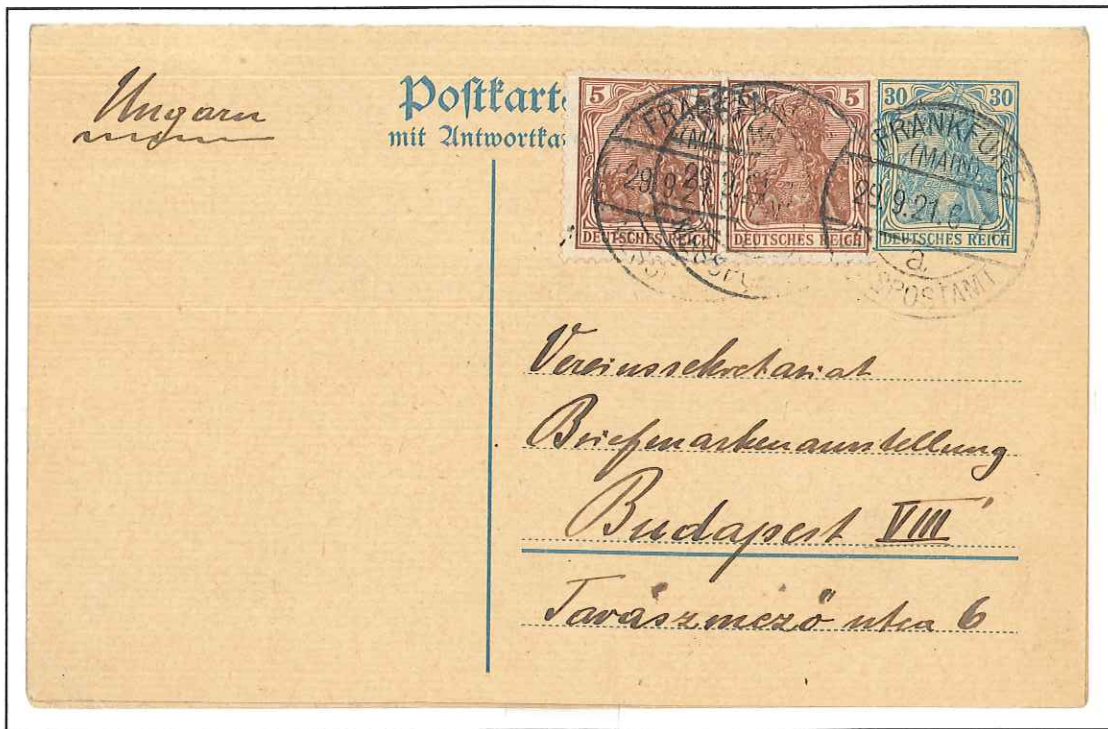 Ungarn
Postkarte
mit Antwortka
5
5
DEUTSCHES REICH
DEUTSCHES REICH
30 30
DEUTSCHES REICH
FRANKFURT
(MAIN)
29.9.21.6
a
Vereinssekretariat
Briefmarkenausstellung
Budapest VIII
Tavászmező utca 6